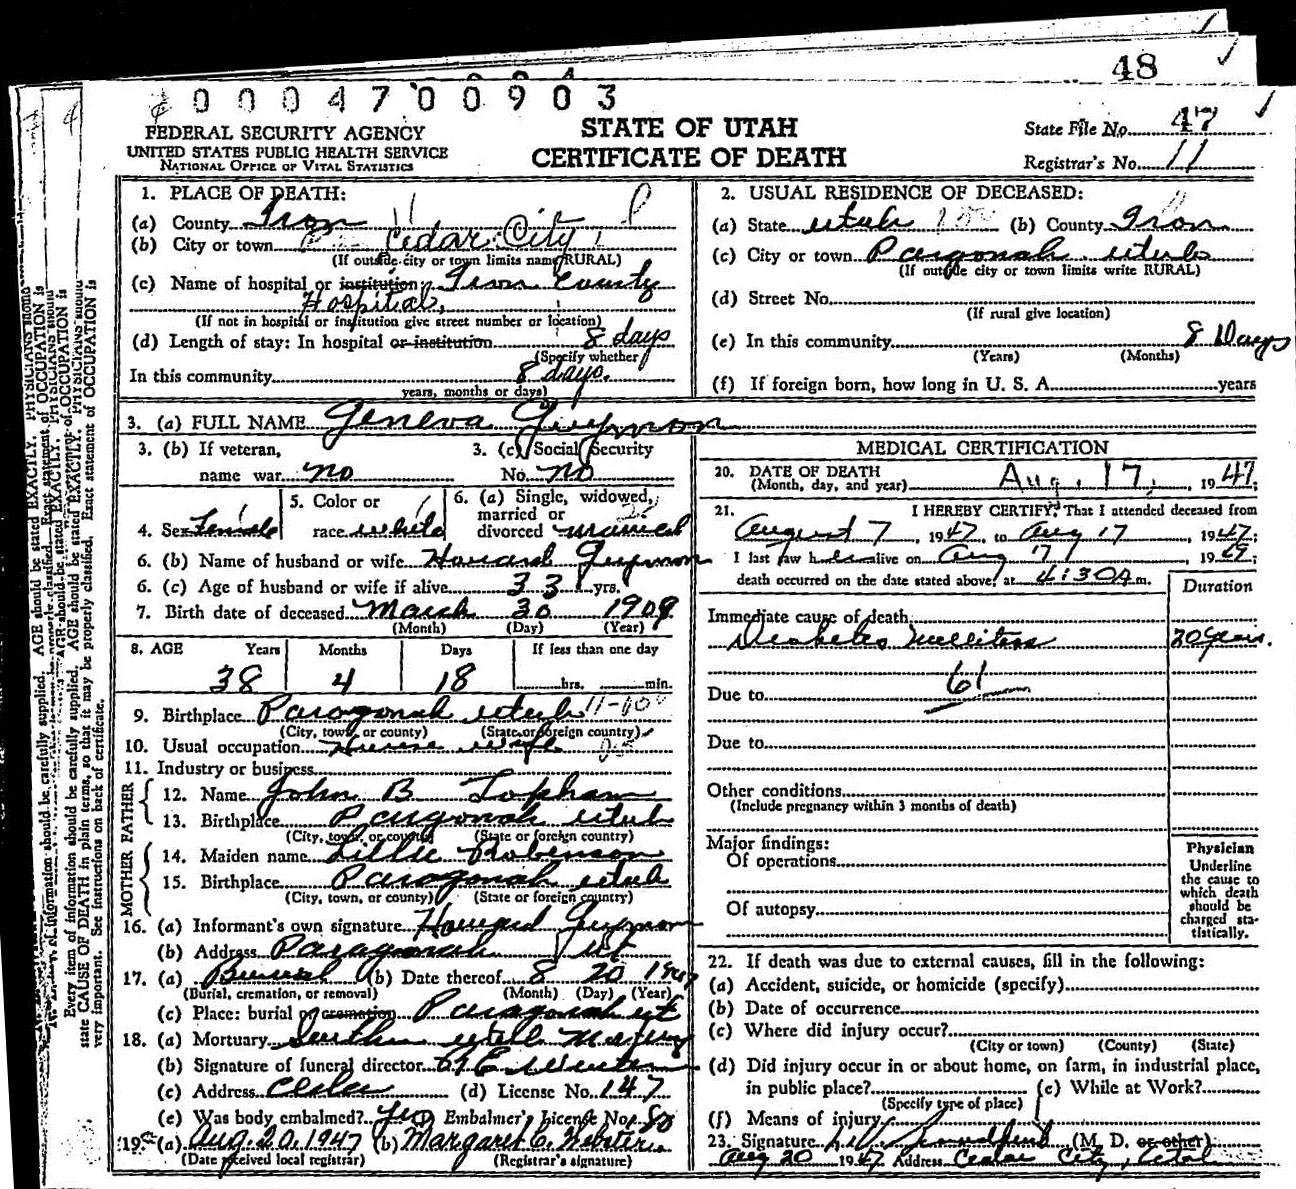 48
0004700903
FEDERAL SECURITY AGENCY
UNITED STATES PUBLIC HEALTH SERVICE
NATIONAL OFFICE OF VITAL STATISTICS
STATE OF UTAH
CERTIFICATE OF DEATH
State File No. 47
Registrar's No. 11
1. PLACE OF DEATH:
(a) County Iron
(b) City or town Cedar City
(If outside city or town limits name RURAL)
(c) Name of hospital or institution: Iron County
Hospital,
(If not in hospital or institution give street number or location)
(d) Length of stay: In hospital or institution 8 days
(Specify whether
In this community 8 days.
years, months or days)
2. USUAL RESIDENCE OF DECEASED:
(a) State Utah (b) County Iron
(c) City or town Paragonah Utah
(If outside city or town limits write RURAL)
(d) Street No.
(If rural give location)
(e) In this community 8 Days
(Years) (Months)
(f) If foreign born, how long in U. S. A. years
3. (a) FULL NAME Geneva Guymon
3. (b) If veteran, 3. (c) Social Security
name war No No. No
4. Sex Female
5. Color or
race white
6. (a) Single, widowed,
married or
divorced married
6. (b) Name of husband or wife Howard Guymon
6. (c) Age of husband or wife if alive 33 yrs.
7. Birth date of deceased March 30 1909
(Month) (Day) (Year)
8. AGE Years Months Days If less than one day
38 4 18 hrs. min.
9. Birthplace Paragonah Utah
(City, town, or county) (State or foreign country)
10. Usual occupation House wife
11. Industry or business
FATHER
12. Name John B Topham
13. Birthplace Paragonah Utah
(City, town, or county) (State or foreign country)
MOTHER
14. Maiden name Lillie Robinson
15. Birthplace Paragonah Utah
(City, town, or county) (State or foreign country)
16. (a) Informant's own signature Howard Guymon
(b) Address Paragonah Ut
17. (a) Burial (b) Date thereof 8 20 1947
(Burial, cremation, or removal) (Month) (Day) (Year)
(c) Place: burial or cremation Paragonah Ut
18. (a) Mortuary Southern Utah Mortuary
(b) Signature of funeral director
(c) Address Cedar (d) License No. 147
(e) Was body embalmed? Yes Embalmer's License No. 80
19. (a) Aug. 20, 1947 (b) Margaret C. Webster
(Date received local registrar) (Registrar's signature)
MEDICAL CERTIFICATION
20. DATE OF DEATH
(Month, day, and year) Aug. 17, 1947;
21. I HEREBY CERTIFY, That I attended deceased from
August 7, 1947, to Aug 17, 1947;
I last saw her alive on Aug 17, 19
death occurred on the date stated above, at 4:30A m.
Duration
Immediate cause of death
Diabetes Mellitus 20 years.
61
Due to
Due to
Other conditions
(Include pregnancy within 3 months of death)
Major findings:
Of operations
Of autopsy
Physician
Underline
the cause to
which death
should be
charged sta-
tistically.
22. If death was due to external causes, fill in the following:
(a) Accident, suicide, or homicide (specify)
(b) Date of occurrence
(c) Where did injury occur?
(City or town) (County) (State)
(d) Did injury occur in or about home, on farm, in industrial place,
in public place? (e) While at Work?
(Specify type of place)
(f) Means of injury
23. Signature (M. D. or other)
Aug 20 1947 Address Cedar City, Utah
Every item of information should be carefully supplied. AGE should be stated EXACTLY. PHYSICIANS should
state CAUSE OF DEATH in plain terms, so that it may be properly classified. Exact statement of OCCUPATION is
very important. See instructions on back of certificate.